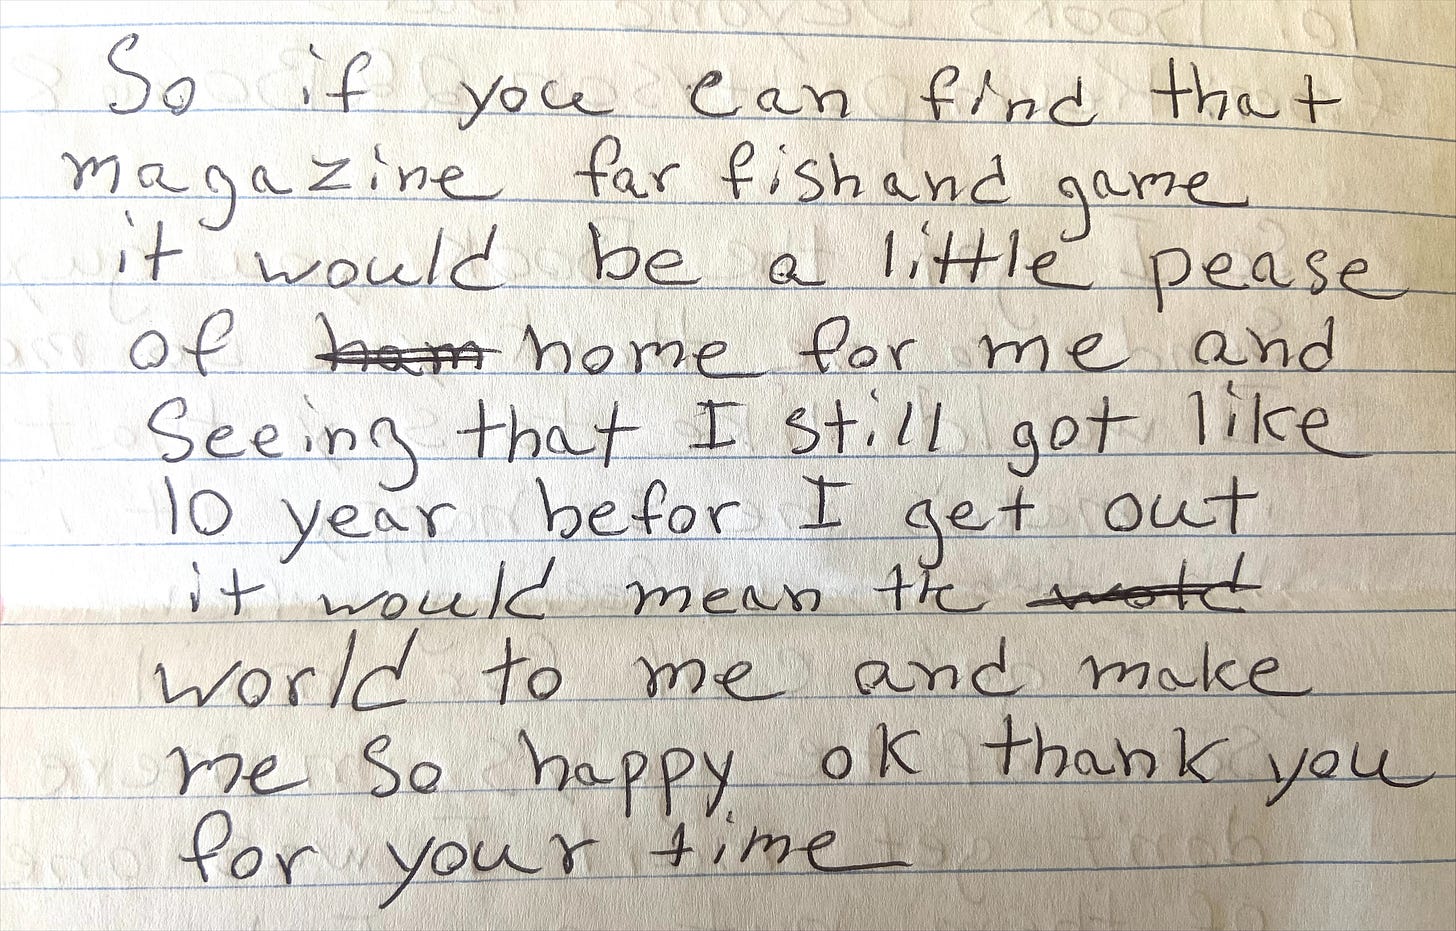 So if you can find that
magazine far fish and game
it would be a little pease
of ham home for me and
Seeing that I still got like
10 year befor I get out
it would mean the wold
world to me and make
me so happy ok thank you
for your time